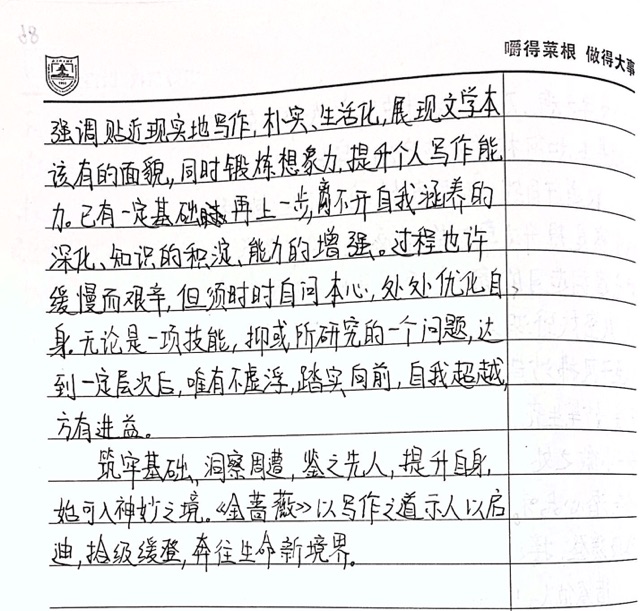 嚼得菜根 做得大事
强调贴近现实地写作,朴实、生活化,展现文学本
该有的面貌,同时锻炼想象力,提升个人写作能
力。已有一定基础再上一步,离不开自我涵养的
深化、知识的积淀、能力的增强。过程也许
缓慢而艰辛,但须时时自问本心,处处优化自
身。无论是一项技能,抑或所研究的一个问题,达
到一定层次后,唯有不虚浮,踏实向前,自我超越,
方有进益。
筑牢基础,洞察周遭,鉴之先人,提升自身,
始可入神妙之境。《金蔷薇》以写作之道示人以启
迪,拾级缓登,奔往生命新境界。